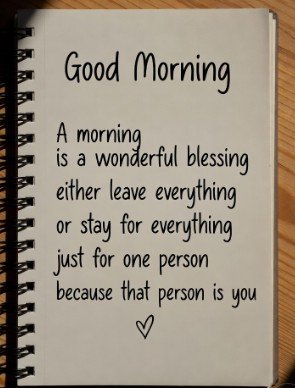 Good Morning
A morning
is a wonderful blessing
either leave everything
or stay for everything
just for one person
because that person is you